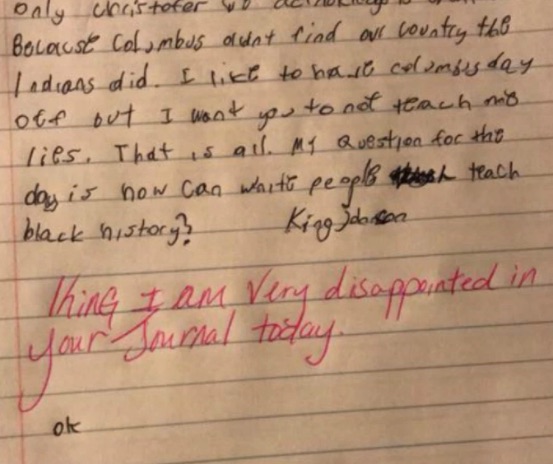 only christofer
Because Columbus didnt find our country the
Indians did. I like to have columbus day
off but I want you to not teach me
lies. That is all. My Question for the
day is how can white people teach
black history?  King Johnson
King I am very disappointed in
your Journal today.
ok